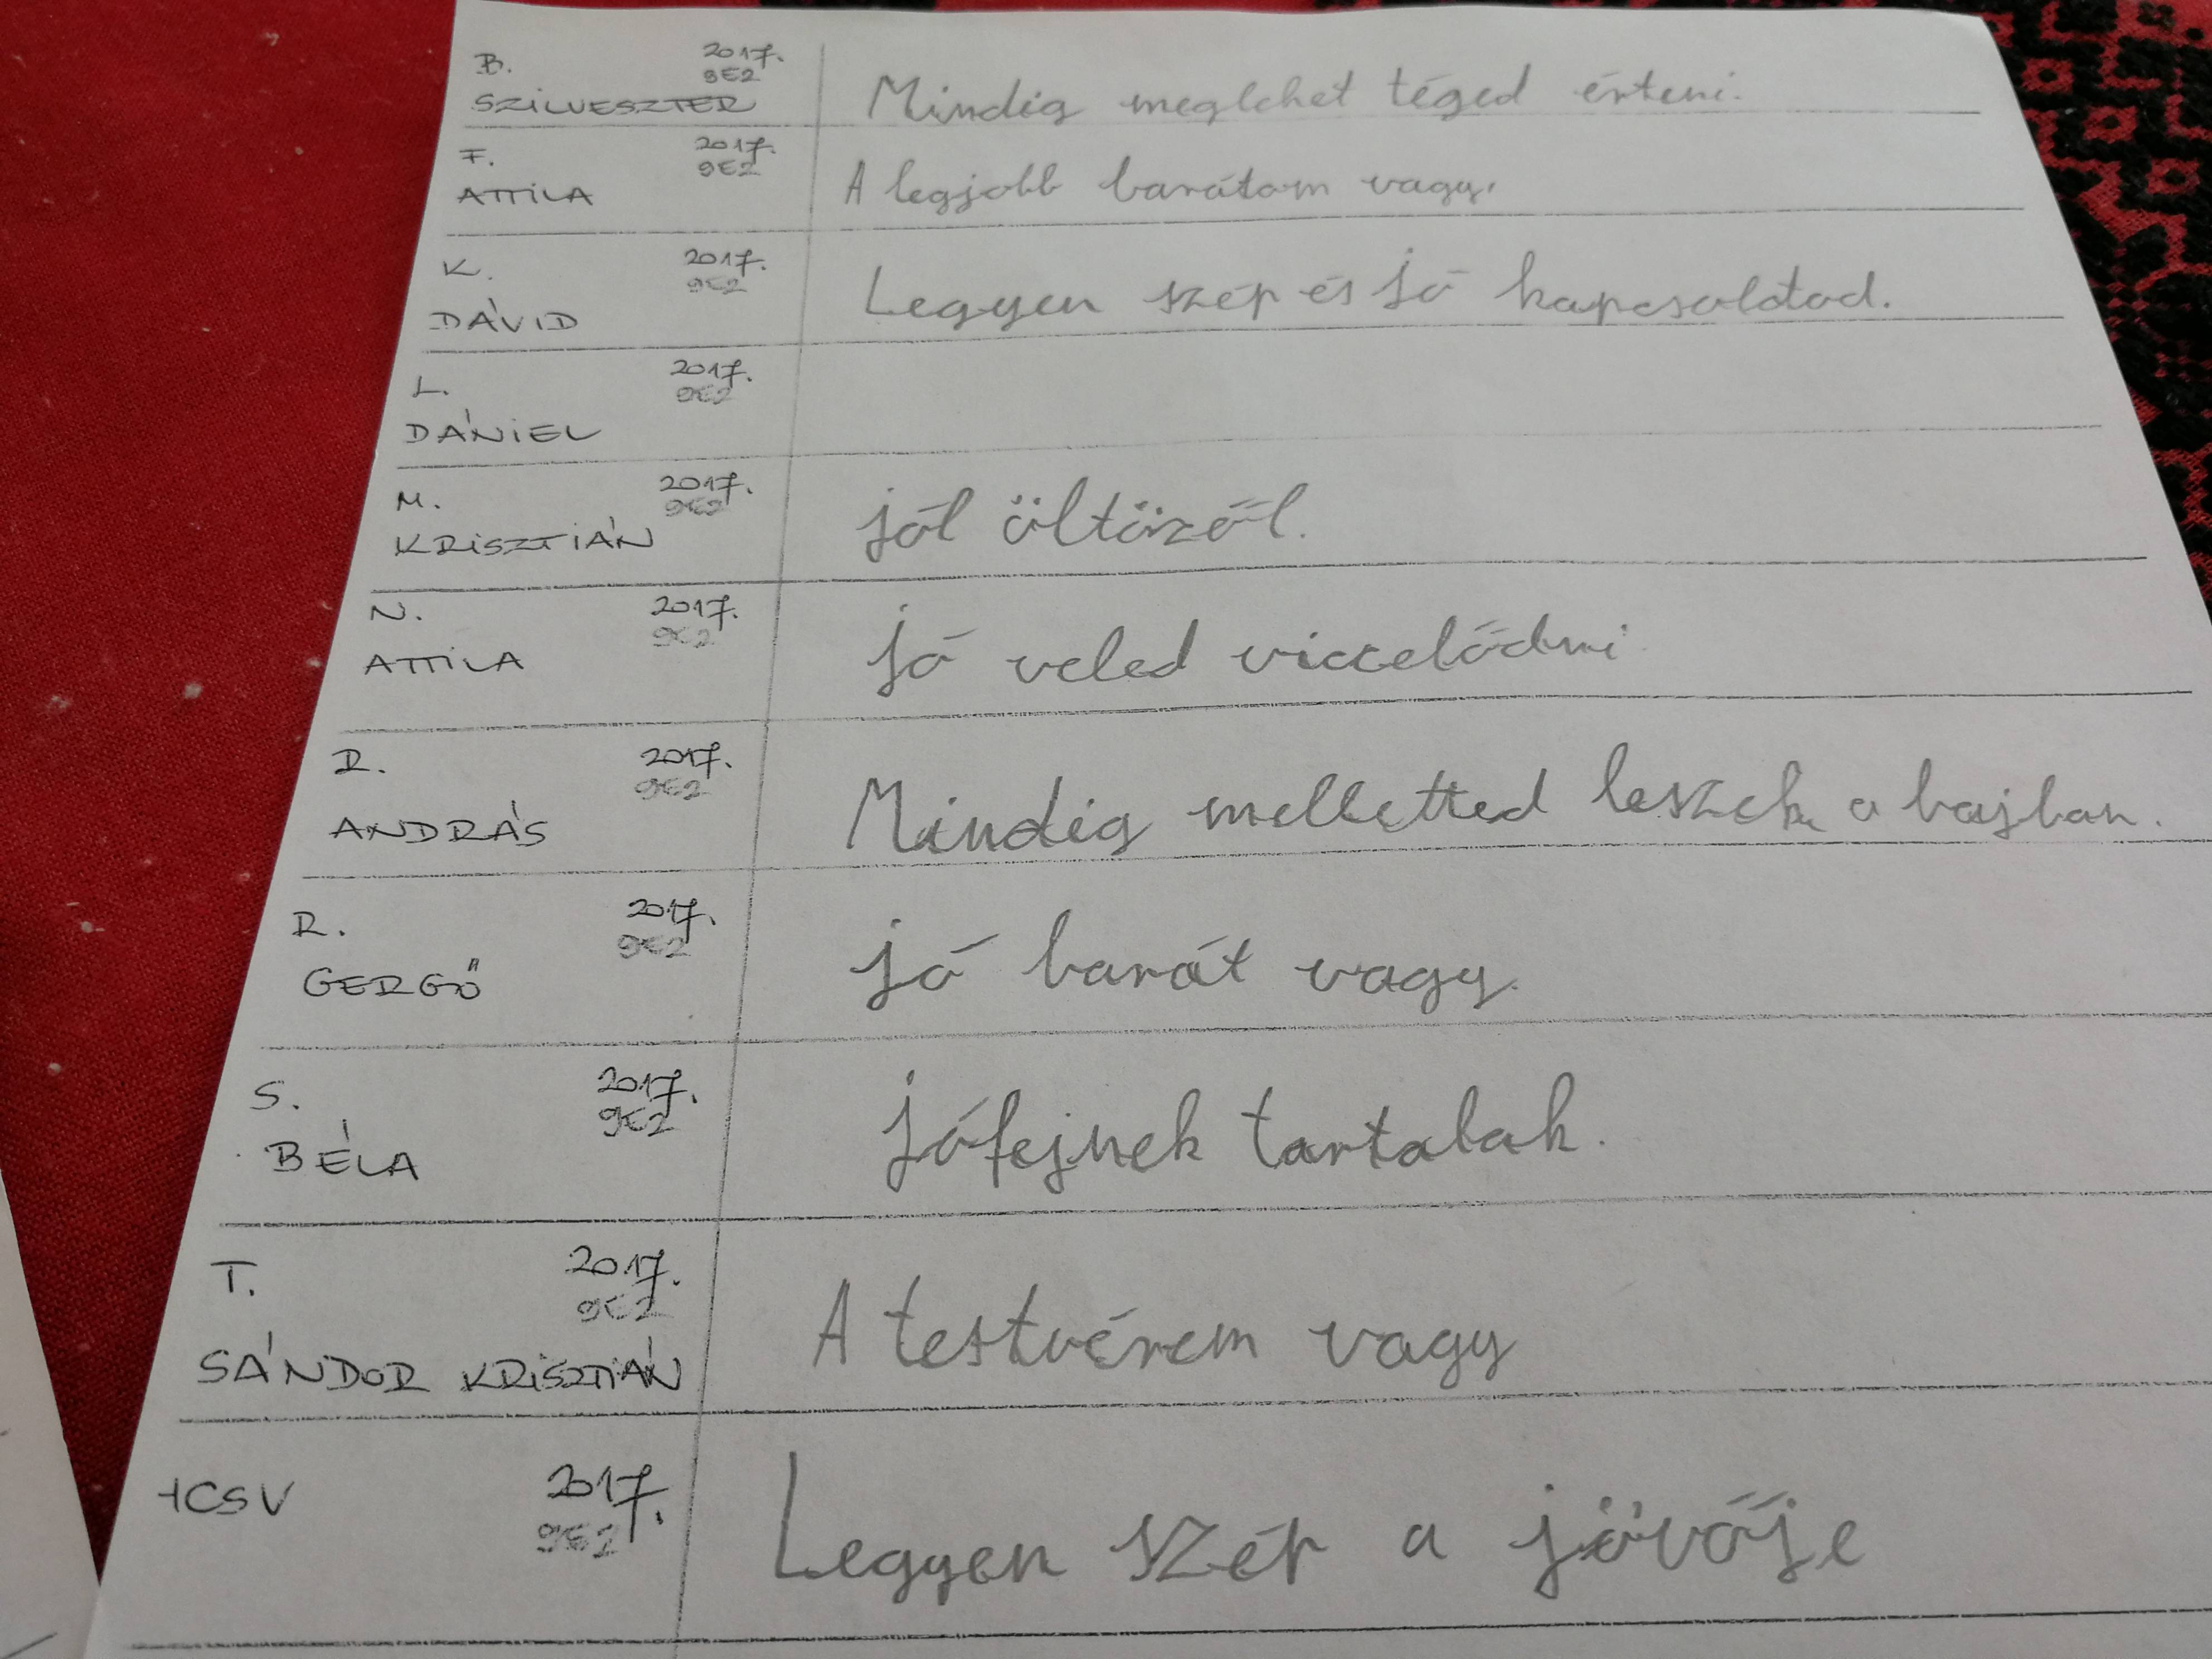 B. 2017.
9E2
SZILVESZTER Mindig meglehet téged érteni.
F. 2017.
9E2
ATTILA A legjobb barátom vagy.
K. 2017.
9E2
DÁVID Legyen szép és jó kapcsolatod.
L. 2017.
9E2
DÁNIEL
M. 2017.
9E2
KRISZTIÁN jól öltözöl.
N. 2017.
9E2
ATTILA jó veled viccelődni
R. 2017.
9E2
ANDRÁS Mindig melletted leszek a bajban.
R. 2017.
9E2
GERGŐ jó barát vagy.
S. 2017.
9E2
BÉLA jófejnek tartalak.
T. 2017.
9E2
SÁNDOR KRISZTIÁN A testvérem vagy
HCSV 2017.
9E2
Legyen szép a jövője